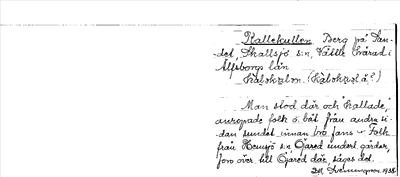 Kallekullen, Berg på San-
det, Skallsjö s:n, Vättle härad i
Älfsborgs län
Man stod där och "kallade",
anropade folk o. båt från andra si-
dan sundet innan bro fans – Folk
från Hemsjö s:n Öjared underl. gårdar,
foro över till Öjared där, säges det.